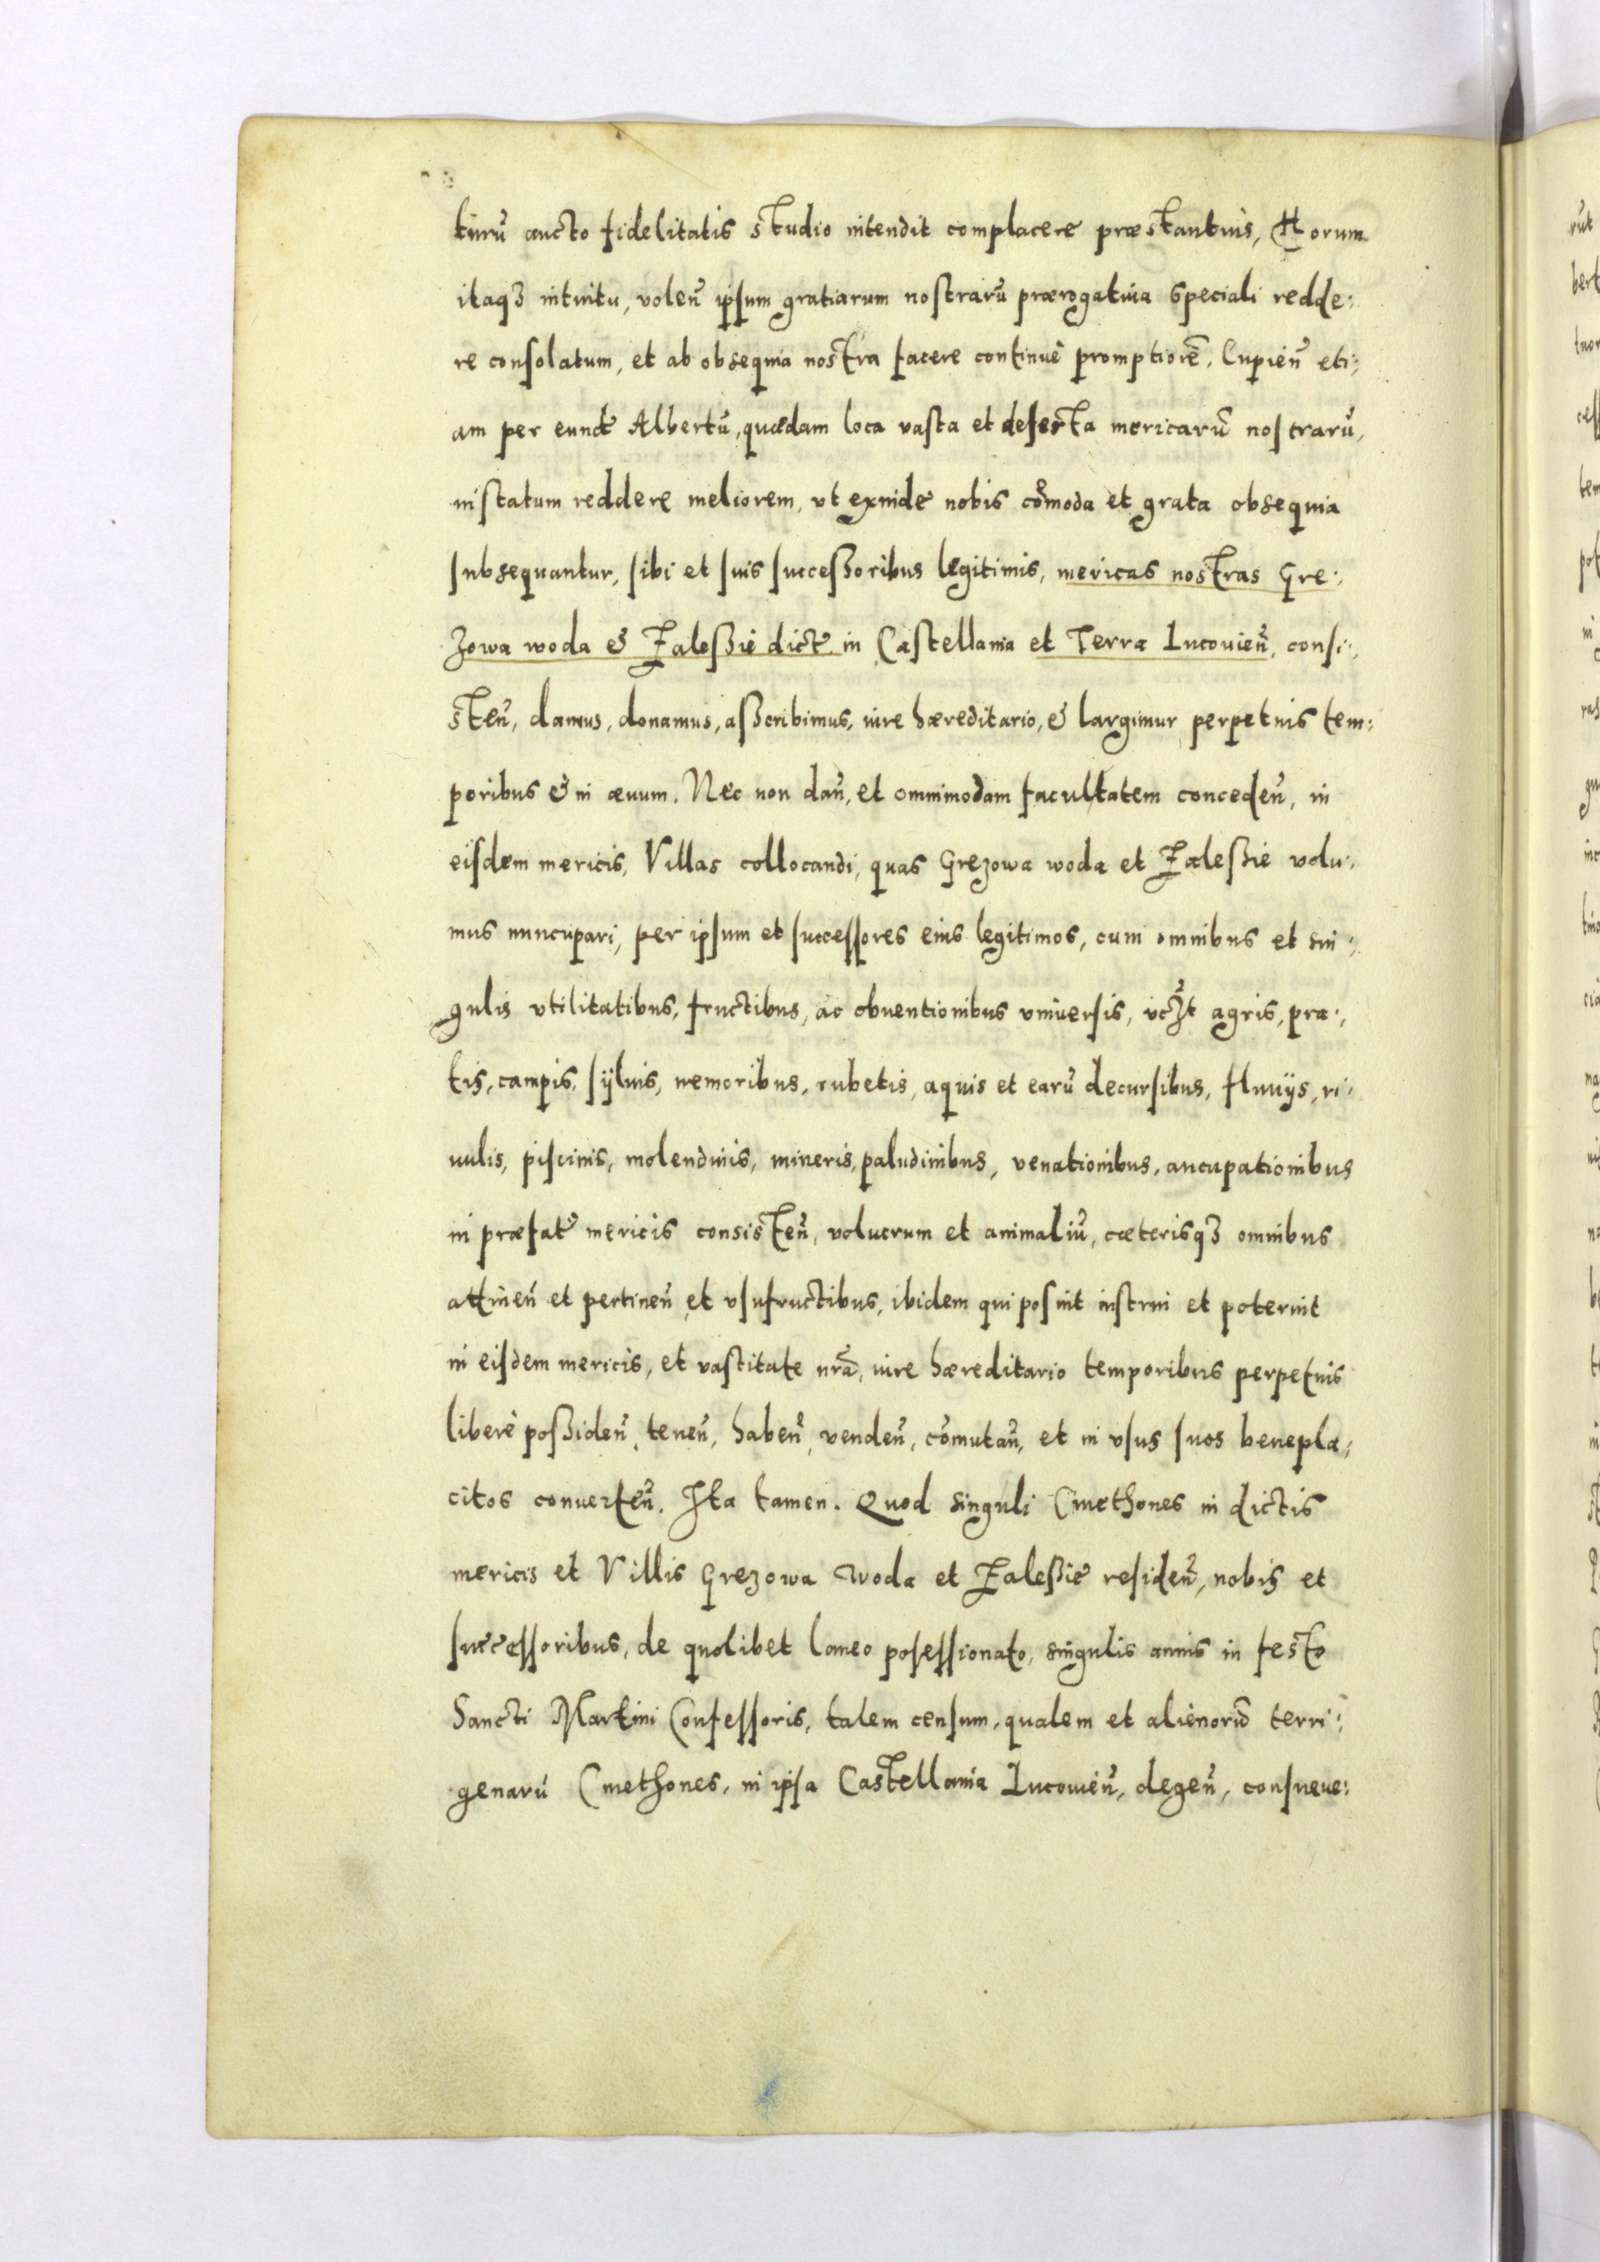 turũ aucto fidelitatis studio intendit complacere præstantius, Horum
itaqȝ intuitu, voleñ ipsum gratiarum nostrarũ prærogatiua speciali redde:
re consolatum, et ab obsequia nostra facere continuè promptiorẽ. Cupieñ eti:
am per eund̃ Albertũ, quædam loca vasta et deserta mericarũ nostrarũ,
in statum reddere meliorem, vt exinde nobis cõmoda et grata obsequia
subsequantur, sibi et suis successoribus legitimis, mericas nostras Gre:
zowa woda & Zalessie dict̃ in Castellania et Terra Lucouieñ, consi:
steñ, damus, donamus, asscribimus, iure hæreditario, & largimur perpetuis tem:
poribus & in æuum. Nec non dañ, et omnimodam facultatem concedeñ, in
eisdem mericis, Villas collocandi, quas Grezowa woda et Zalessie volu:
mus nuncupari, per ipsum et successores eius legitimos, cum omnibus et sin:
gulis vtilitatibus, fructibus, ac obuentionibus vniuersis, agris, pra:
tis, campis, syluis, nemoribus, rubetis, aquis et earũ decursibus, fluuijs, ri:
uulis, piscinis, molendinis, mineris, paludinibus, venationibus, aucupationibus
in præfat̃ mericis consisteñ, volucrum et animaliũ, cæterisqȝ omnibus
attineñ et pertineñ et vsufructibus, ibidem qui posint instrui et poterint
in eisdem mericis, et vastitate nrã, iure hæreditario temporibus perpetuis
liberè possideñ, teneñ, habeñ, vendeñ, cõmutañ, et in vsus suos benepla:
citos conuerteñ. Ita tamen. Quod singuli Cmethones in dictis
mericis et Villis Grezowa Woda et Zalessie resideñ, nobis et
successoribus, de quolibet laneo posessionato, singulis annis in festo
Sancti Martini Confessoris, talem censum, qualem et alienorũ terri:
genarũ Cmethones, in ipsa Castellania Lucouieñ, degeñ, consueue: